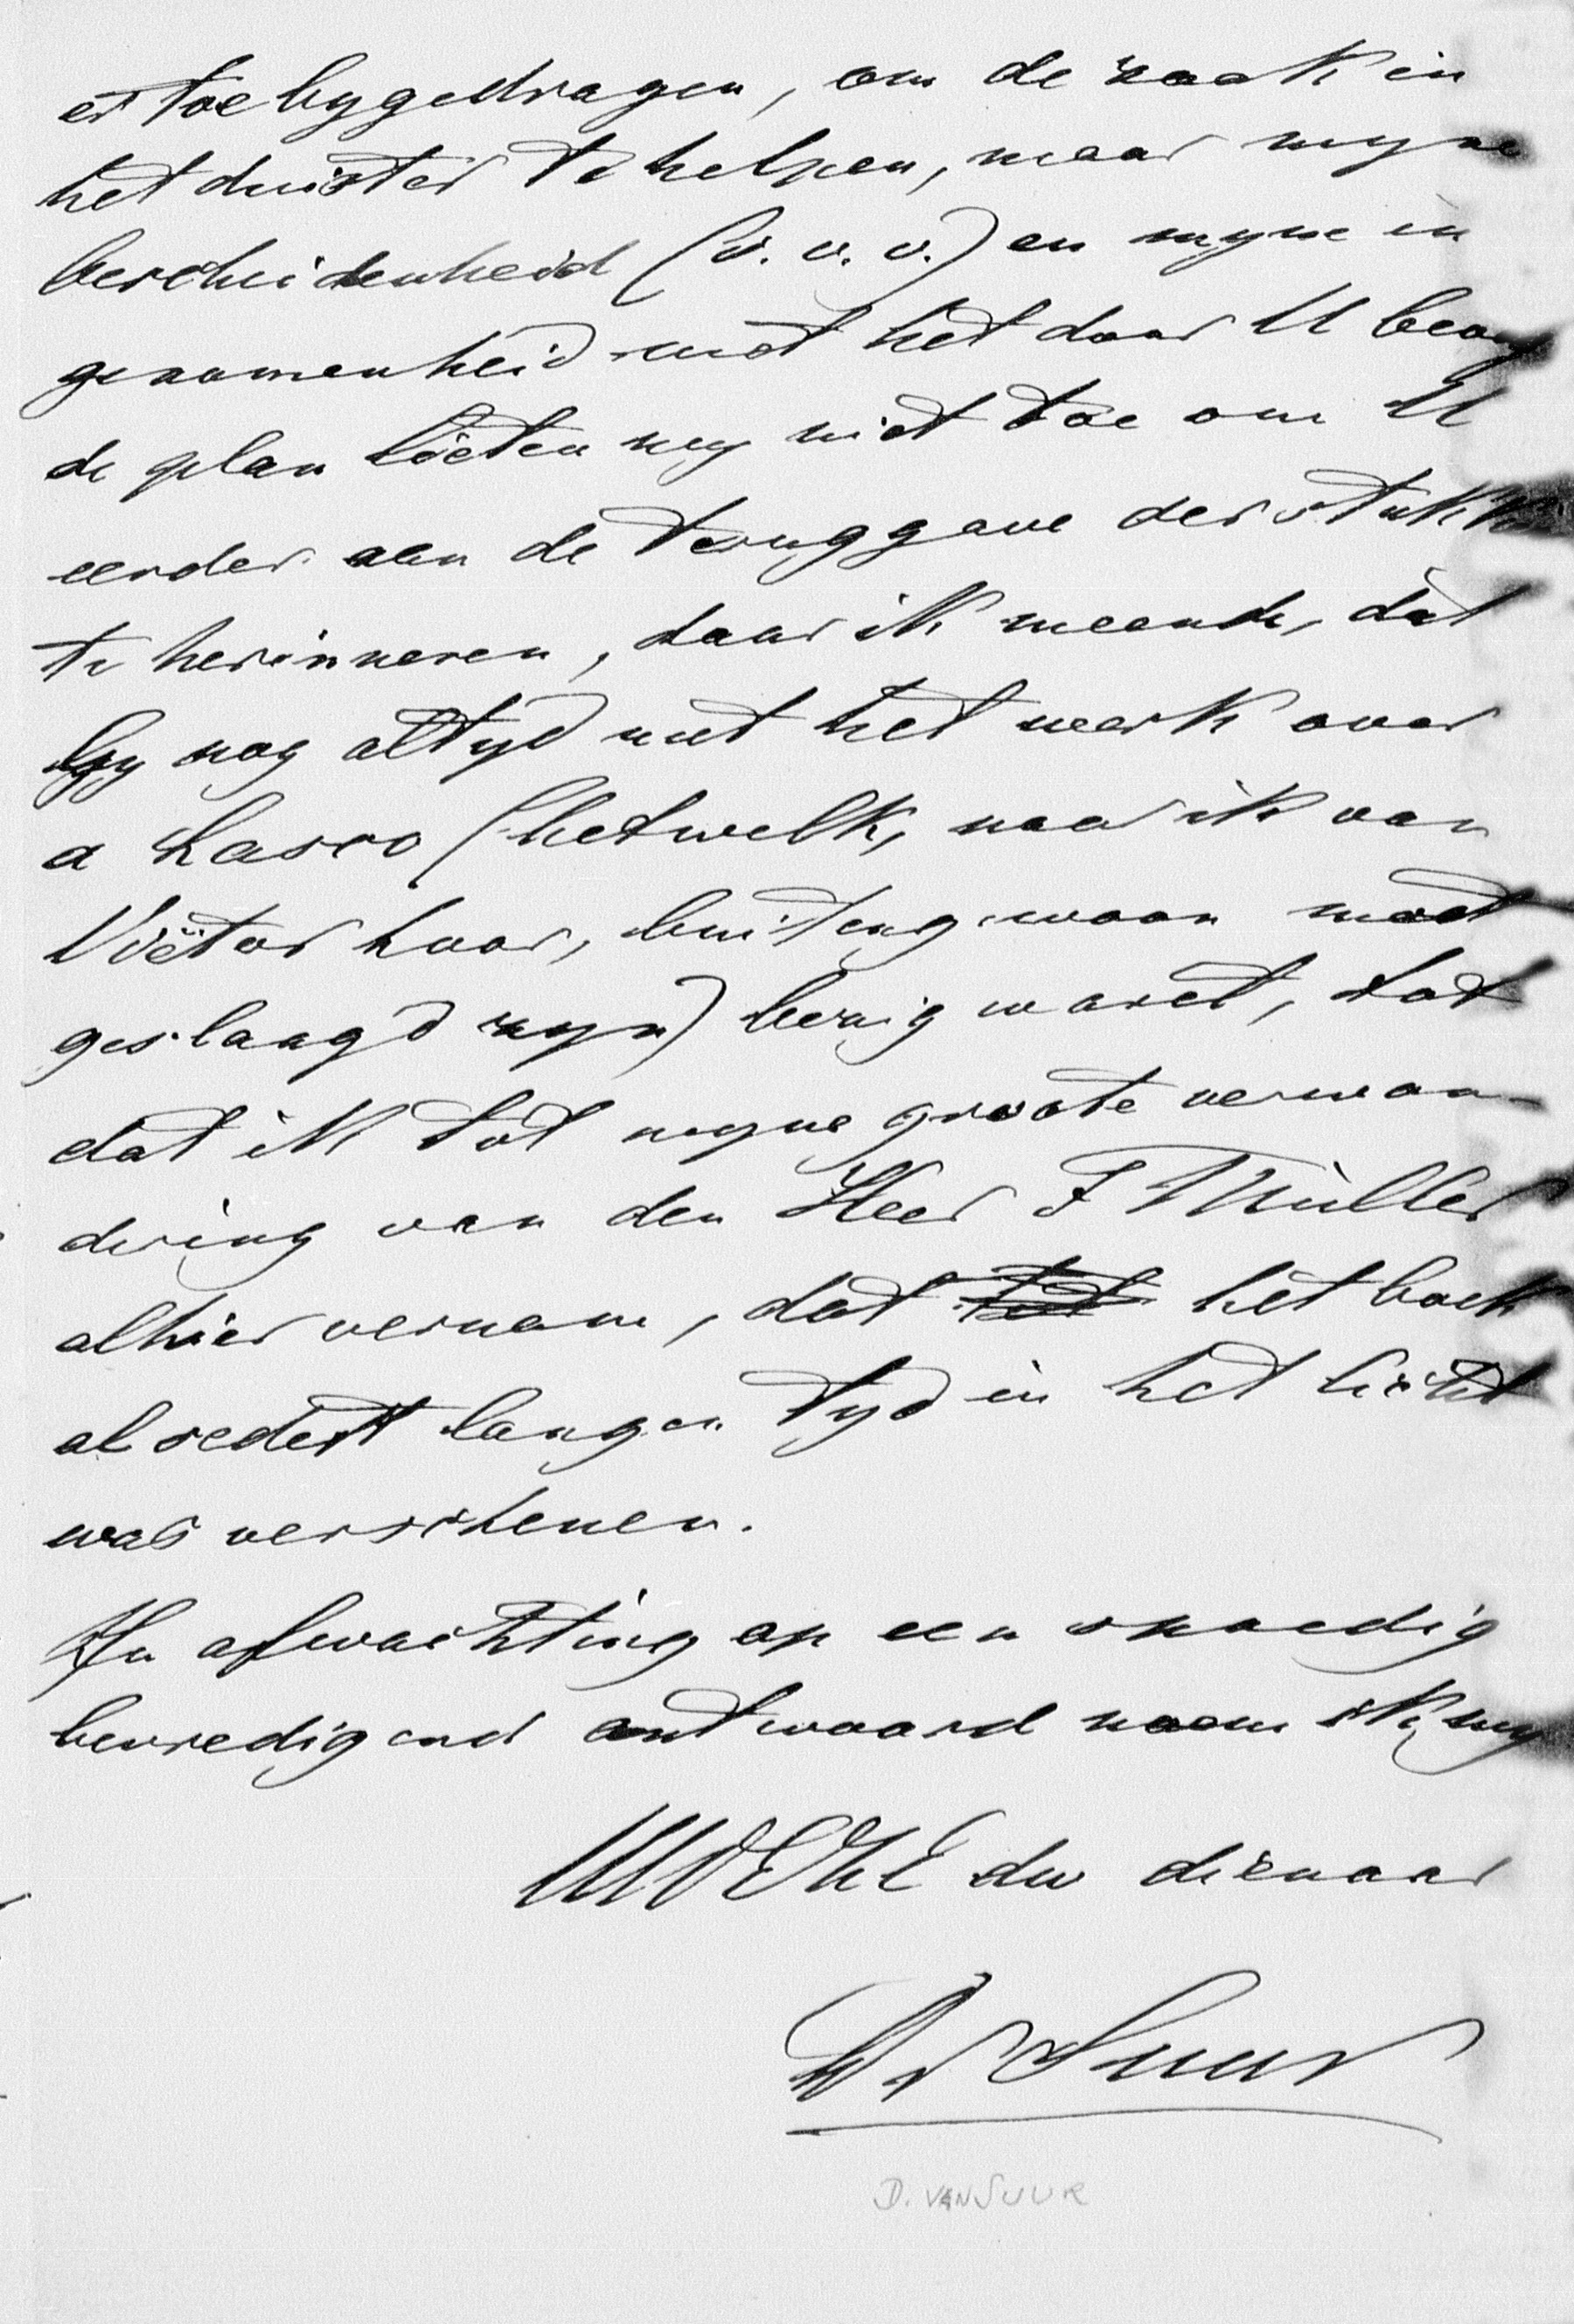 er toe bygedragen, om de zaak in
het duister te helpen, maar myne
bescheidenheid (s. v. v.) en myne in
genomenheid met het door U beoog
de plan lieten my niet toe om U
eerder aan de teruggave der stukken
te herinneren, daar ik meende, dat
Gy nog altyd met het werk over
a Lasco (hetwelk, naar ik van
Viëtor hoor, buitengewoon moet
geslaagd zyn) bezig waret, tot
dat ik tot myne groote verwon-
dering van den Heer F Müller
alhier vernam, dat tot het boek
al sedert langen tyd in het licht
was verschenen.
In afwachting op een spoedig
bevredigend antwoord noem ik my
UWEHE dw dienaar
Suur
D. VAN SUUR